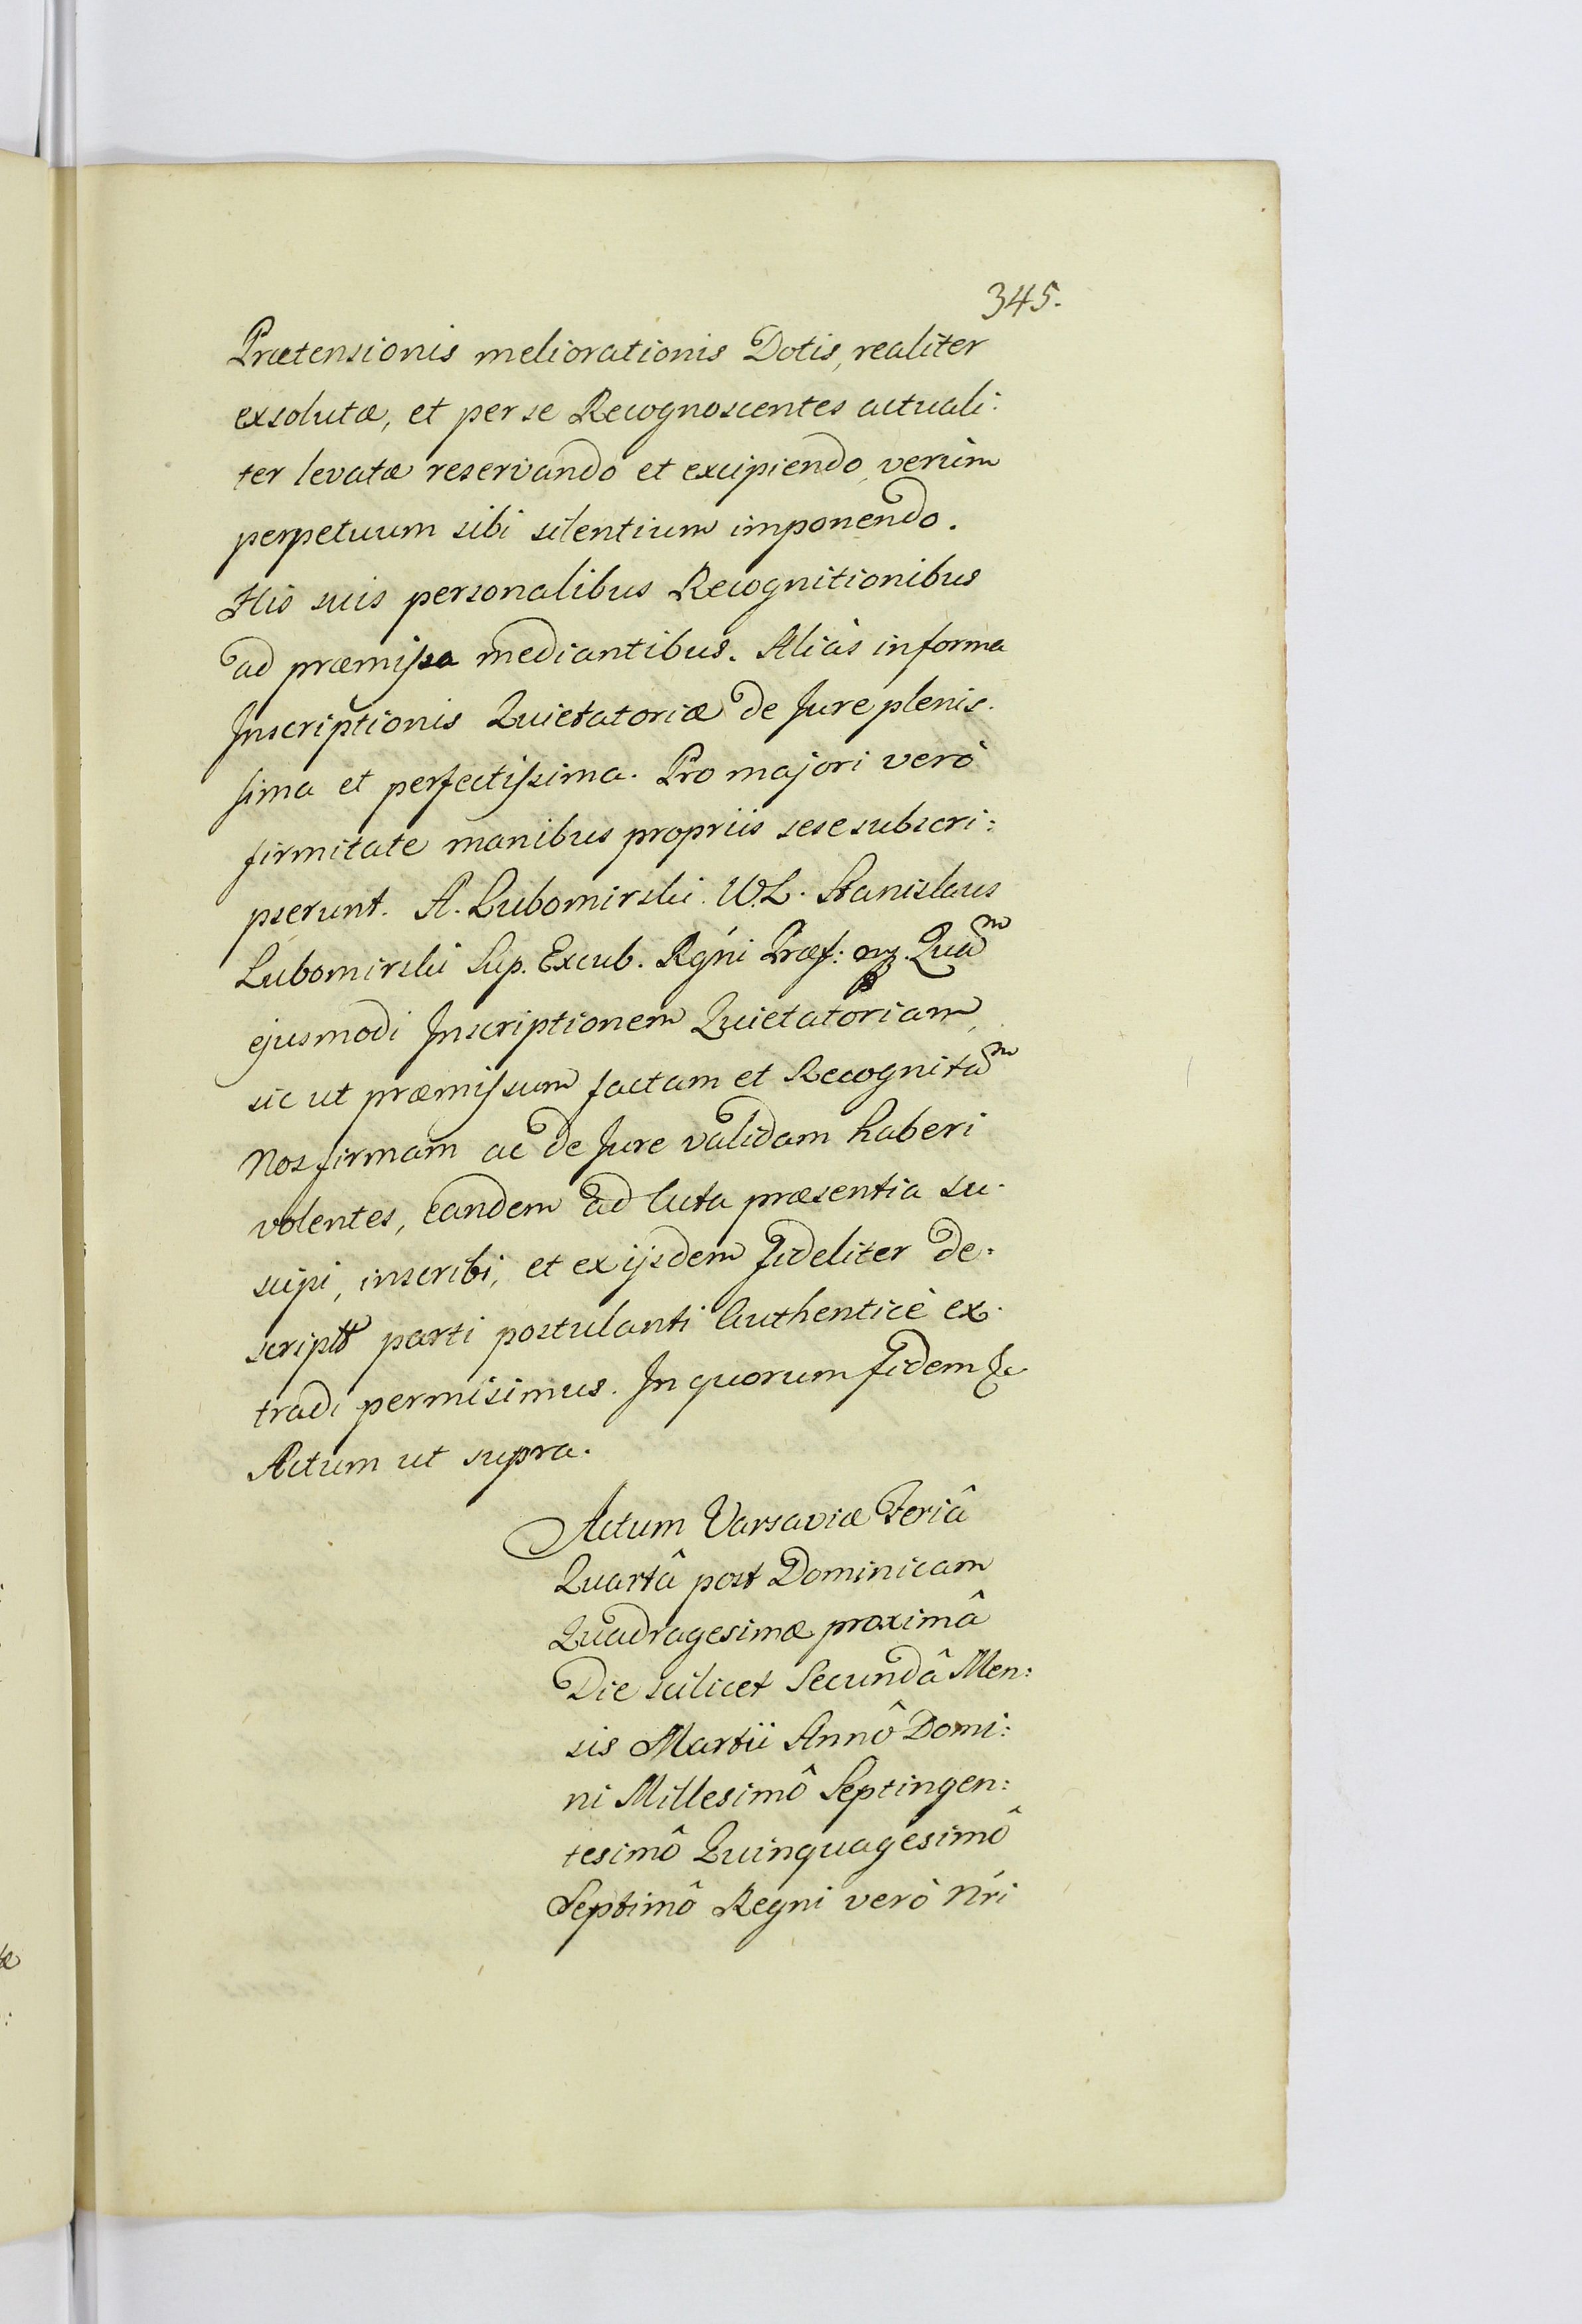 345.
Prætensionis meliorationis Dotis, realiter
exsolutæ, et per se Recognoscentes actuali:
ter levatæ reservando et excipiendo, verùm
perpetuum sibi silentium imponendo.
His suis personalibus Recognitionibus
ad præmissa mediantibus. Aliàs in forma
Inscriptionis Quietatoriæ de Jure plenis.
sima et perfectissima. Pro majori verò
firmitate manibus propriis sese subscri:
pserunt. A. Lubomirski. W.L. Stanislaus
Lubomirski Sup. Excub. Rgńi Præf: mp. Quam
ejusmodi Inscriptionem Quietatoriam,
sic ut præmissum factam et Recognitam
Nos firmam ac de Jure validam haberi
volentes, eandem ad Acta præsentia su.
scipi, inscribi, et ex ijsdem fideliter de:
scriptã parti postulanti Authenticè ex.
tradi permisimus. In quorum fidem &c
Actum ut supra.
Actum Varsaviæ Feriâ
Quartâ post Dominicam
Quadragesimæ proximâ
Die scilicet Secundâ Men:
sis Martii Annô Domi:
ni Millesimô Septingen:
tesimô Quinquagesimô
Septimô Regni verò Nŕi